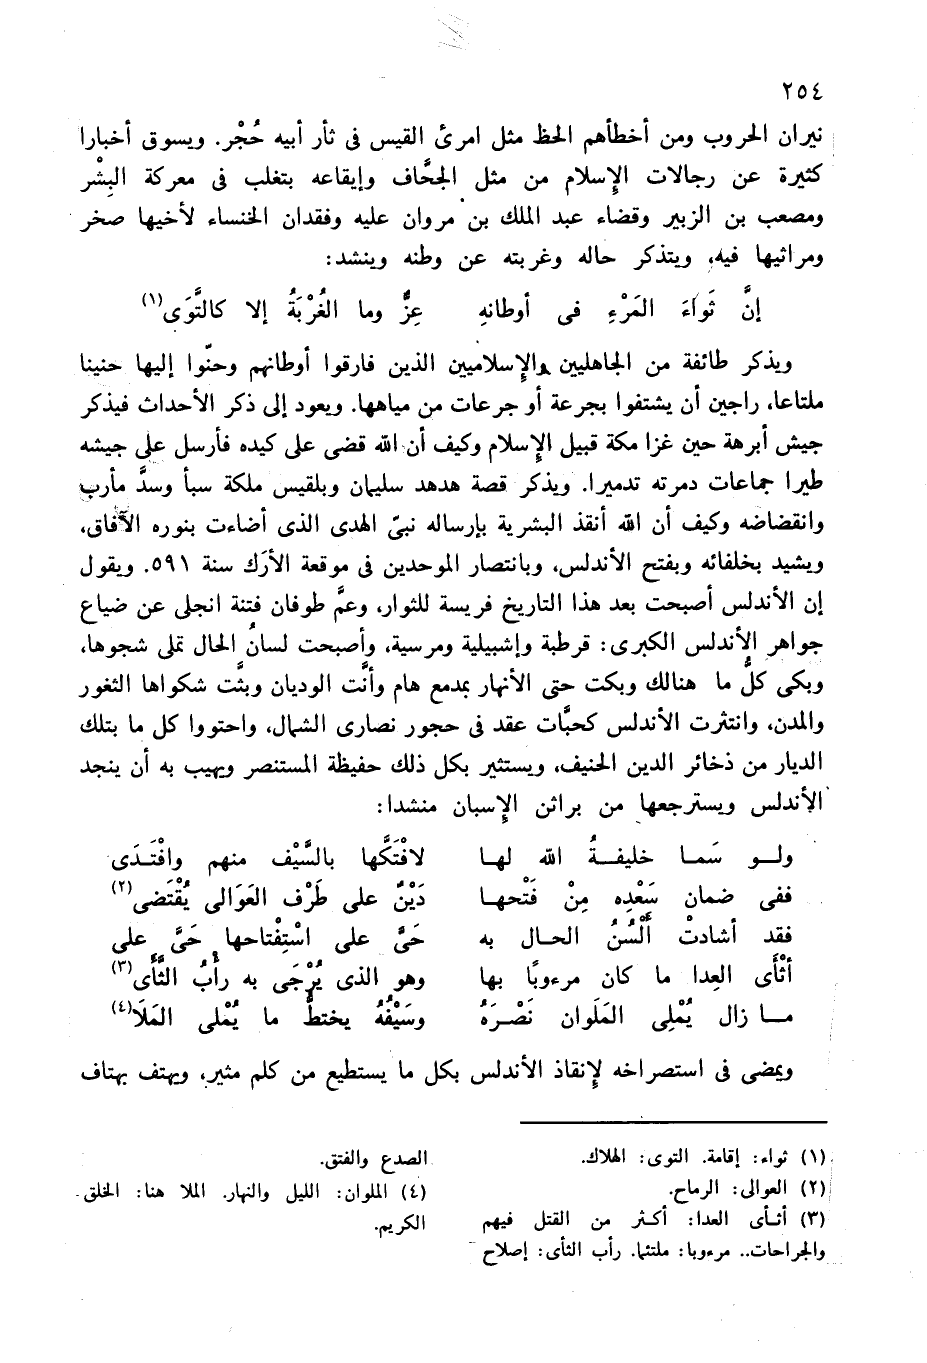 ٢٥٤
نيران الحروب ومن أخطأهم الحظ مثل امرئ القيس فى ثأر أبيه حُجْر. ويسوق أخبارا
كثيرة عن رجالات الإسلام من مثل الجحَّاف وإيقاعه بتغلب فى معركة البِشْر
ومصعب بن الزبير وقضاء عبد الملك بن مروان عليه وفقدان الخنساء لأخيها صخر
ومراثيها فيه، ويتذكر حاله وغربته عن وطنه وينشد:
إنَّ ثَواءَ المَرْءِ فى أوطانهِ عِزٌّ وما الغُرْبَةُ إلا كالتَّوَى(١)
ويذكر طائفة من الجاهليين والإسلاميين الذين فارقوا أوطانهم وحنّوا إليها حنينا
ملتاعا، راجين أن يشتفوا بجرعة أو جرعات من مياهها. ويعود إلى ذكر الأحداث فيذكر
جيش أبرهة حين غزا مكة قبيل الإسلام وكيف أن الله قضى على كيده فأرسل على جيشه
طيرا جماعات دمرته تدميرا. ويذكر قصة هدهد سليمان وبلقيس ملكة سبأ وسدَّ مأرب
وانقضاضه وكيف أن الله أنقذ البشرية بإرساله نبيّ الهدى الذى أضاءت بنوره الآفاق،
ويشيد بخلفائه وبفتح الأندلس، وبانتصار الموحدين فى موقعة الأرَك سنة ٥٩١. ويقول
إن الأندلس أصبحت بعد هذا التاريخ فريسة للثوار، وعمَّ طوفان فتنة انجلى عن ضياع
جواهر الأندلس الكبرى: قرطبة وإشبيلية ومرسية، وأصبحت لسانُ الحال تملى شجوها،
وبكى كلُّ ما هنالك وبكت حتى الأنهار بمدمع هام وأنَّت الوديان وبثَّت شكواها الثغور
والمدن، وانتثرت الأندلس كحبَّات عقد فى حجور نصارى الشمال، واحتووا كل ما بتلك
الديار من ذخائر الدين الحنيف، ويستثير بكل ذلك حفيظة المستنصر ويهيب به أن ينجد
الأندلس ويسترجعها من براثن الإسبان منشدا:
ولو سَما خليفةُ الله لها لافْتَكَّها بالسَّيْف منهم وافْتَدَى
ففى ضمان سَعْدِه مِنْ فَتْحها دَيْنٌ على طَرْف العَوالى يُقْتَضى(٢)
فقد أشادتْ ألْسُنُ الحال به حَىَّ على اسْتِفْتاحها حَىَّ على
أثْأَى العِدا ما كان مرءوبًا بها وهو الذى يُرْجَى به رأبُ الثَّأَى(٣)
ما زال يُمْلِى المَلَوان نَصْرَهُ وسَيْفُهُ يختطُّ ما يُمْلى المَلَا(٤)
ويمضى فى استصراخه لإنقاذ الأندلس بكل ما يستطيع من كلم مثير، ويهتف بهتاف
(١) ثواء: إقامة. التوى: الهلاك.
(٢) العوالى: الرماح.
(٣) أثأى العدا: أكثر من القتل فيهم
والجراحات.. مرءوبا: ملتئما. رأب الثأى: إصلاح
الصدع والفتق.
(٤) الملوان: الليل والنهار. الملا هنا: الخلق
الكريم.